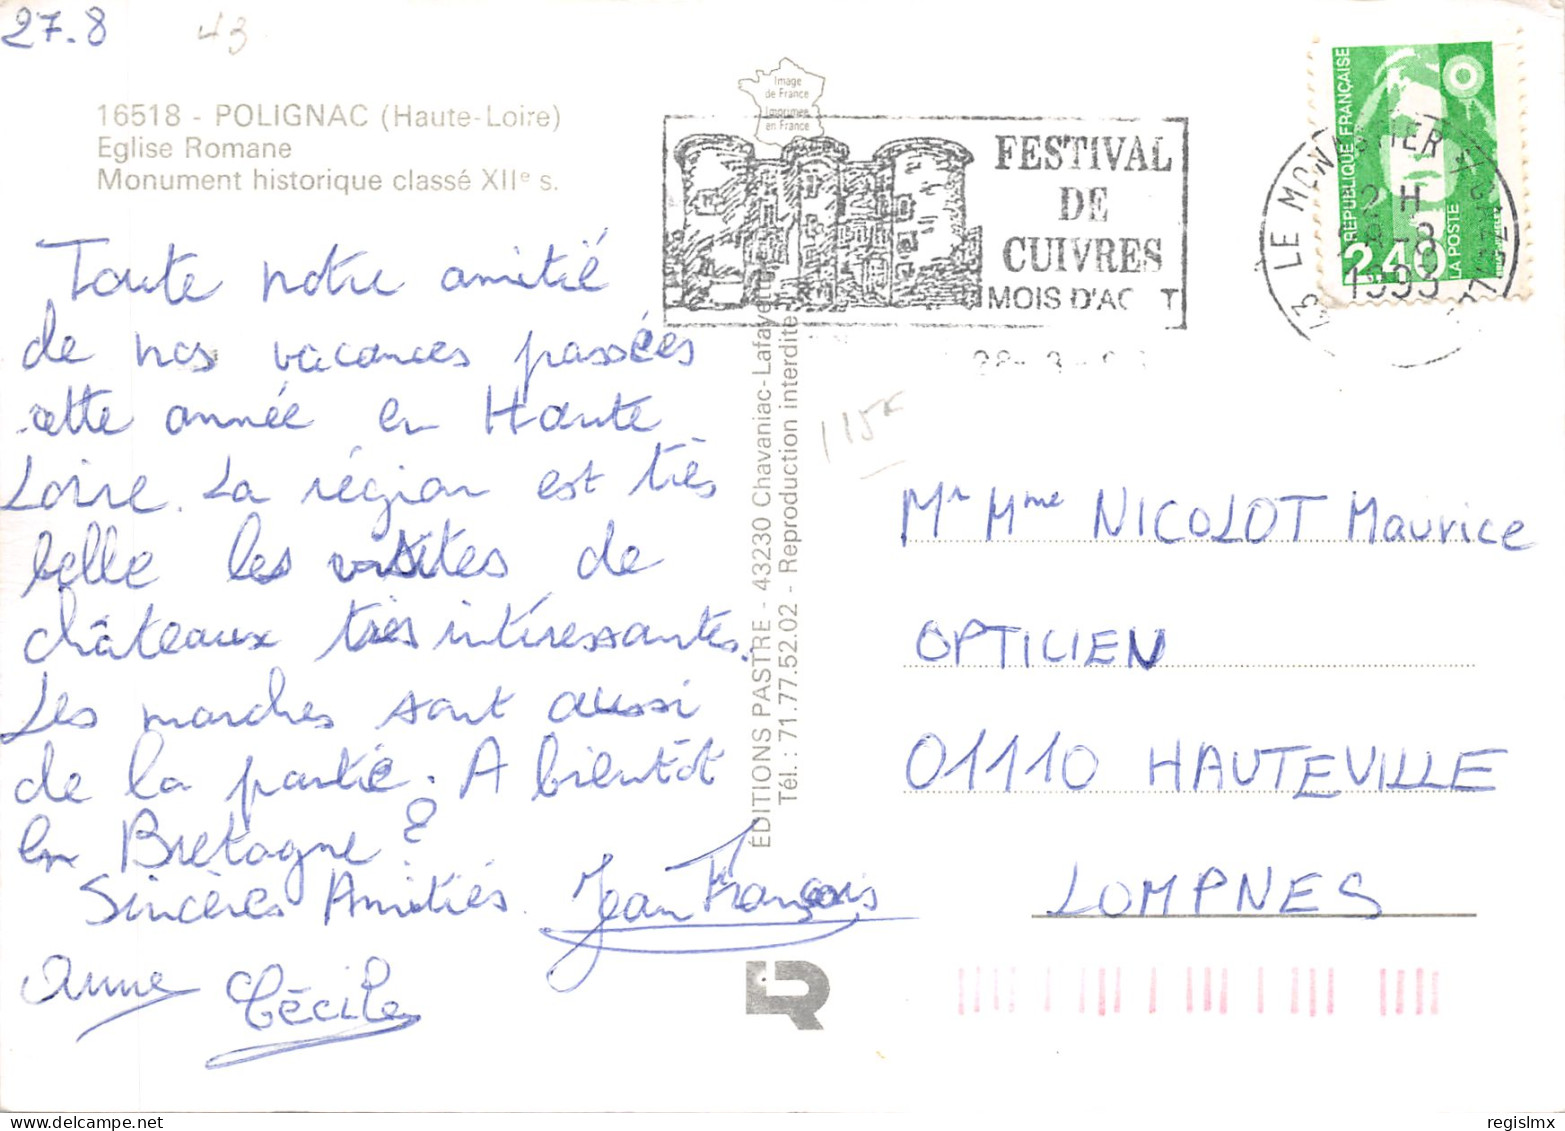 27.8
43
16518 - POLIGNAC (Haute-Loire)
Eglise Romane
Monument historique classé XIIe s.
Toute notre amitié
de nos vacances passées
cette année en Haute
Loire. La région est très
belle les visites de
châteaux très intéressantes.
Les marches sont aussi
de la partie. A bientôt
en Bretagne ?
Sincères Amitiés.
Jean François
Anne
Cécile
Image
de France
Imprimée
en France
FESTIVAL
DE
CUIVRES
MOIS D'AOUT
ÉDITIONS PASTRE - 43230 Chavaniac-Lafayette
Tél. : 71.77.52.02 - Reproduction interdite
RÉPUBLIQUE FRANÇAISE
LA POSTE
2,40
43 LE MONASTIER
12 H
1993
Mr Mme NICOLOT Maurice
OPTICIEN
01110 HAUTEVILLE
LOMPNES
regislmx